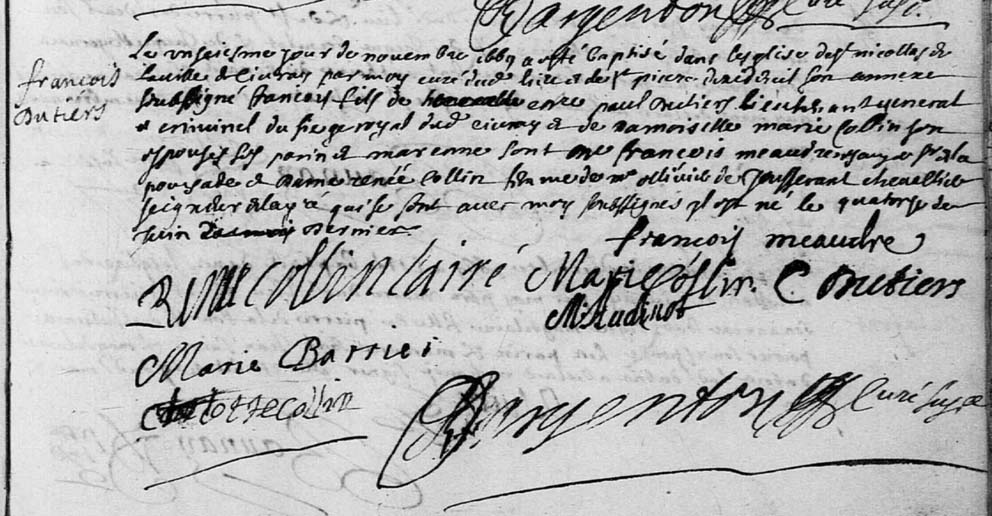 Dargenton curé susd.
françois
Dutiers
Le unsiesme jour de novembre 1669 a esté baptisé dans lesglise de st nicollas de
la ville de Civray par moy curé dud. lieu et de st pierre son annexe
soubssigné françois fils de Paul Dutiers Lieutenant general
criminel du siege royal dud. civray et de Damoiselle marie Collin son
espouse les parin et marenne sont Me françois meaudre sr de la
pousade et Dame renée Collin femme de mre ollivier de Jousserant chevallier
seigneur de layré qui se sont avec moy soubssignes il est né le quatorze de
juin Dernier
françois meaudre
Renee Collin lairé Marie Collin C Dutiers
M Audinot
Marie Barrier
Collin
Dargenton curé susd.